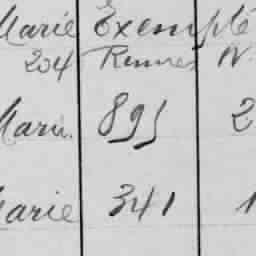 Marie Exempté
204 Rennes N.
Marie 895 2
Marie 341 1